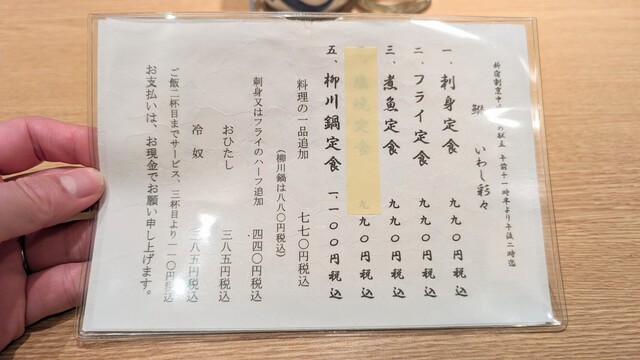 新宿割烹中嶋の献立 午前十一時半より午後二時迄
鰯 いわし彩々
一、刺身定食 九九〇円税込
二、フライ定食 九九〇円税込
三、煮魚定食 九九〇円税込
塩焼定食 九九〇円税込
五、柳川鍋定食 一、一〇〇円税込
料理の一品追加 七七〇円税込
(柳川鍋は八八〇円税込)
刺身又はフライのハーフ追加 四四〇円税込
おひたし 三八五円税込
冷奴 三八五円税込
ご飯二杯目までサービス、三杯目より一一〇円税込
お支払いは、お現金でお願い申し上げます。